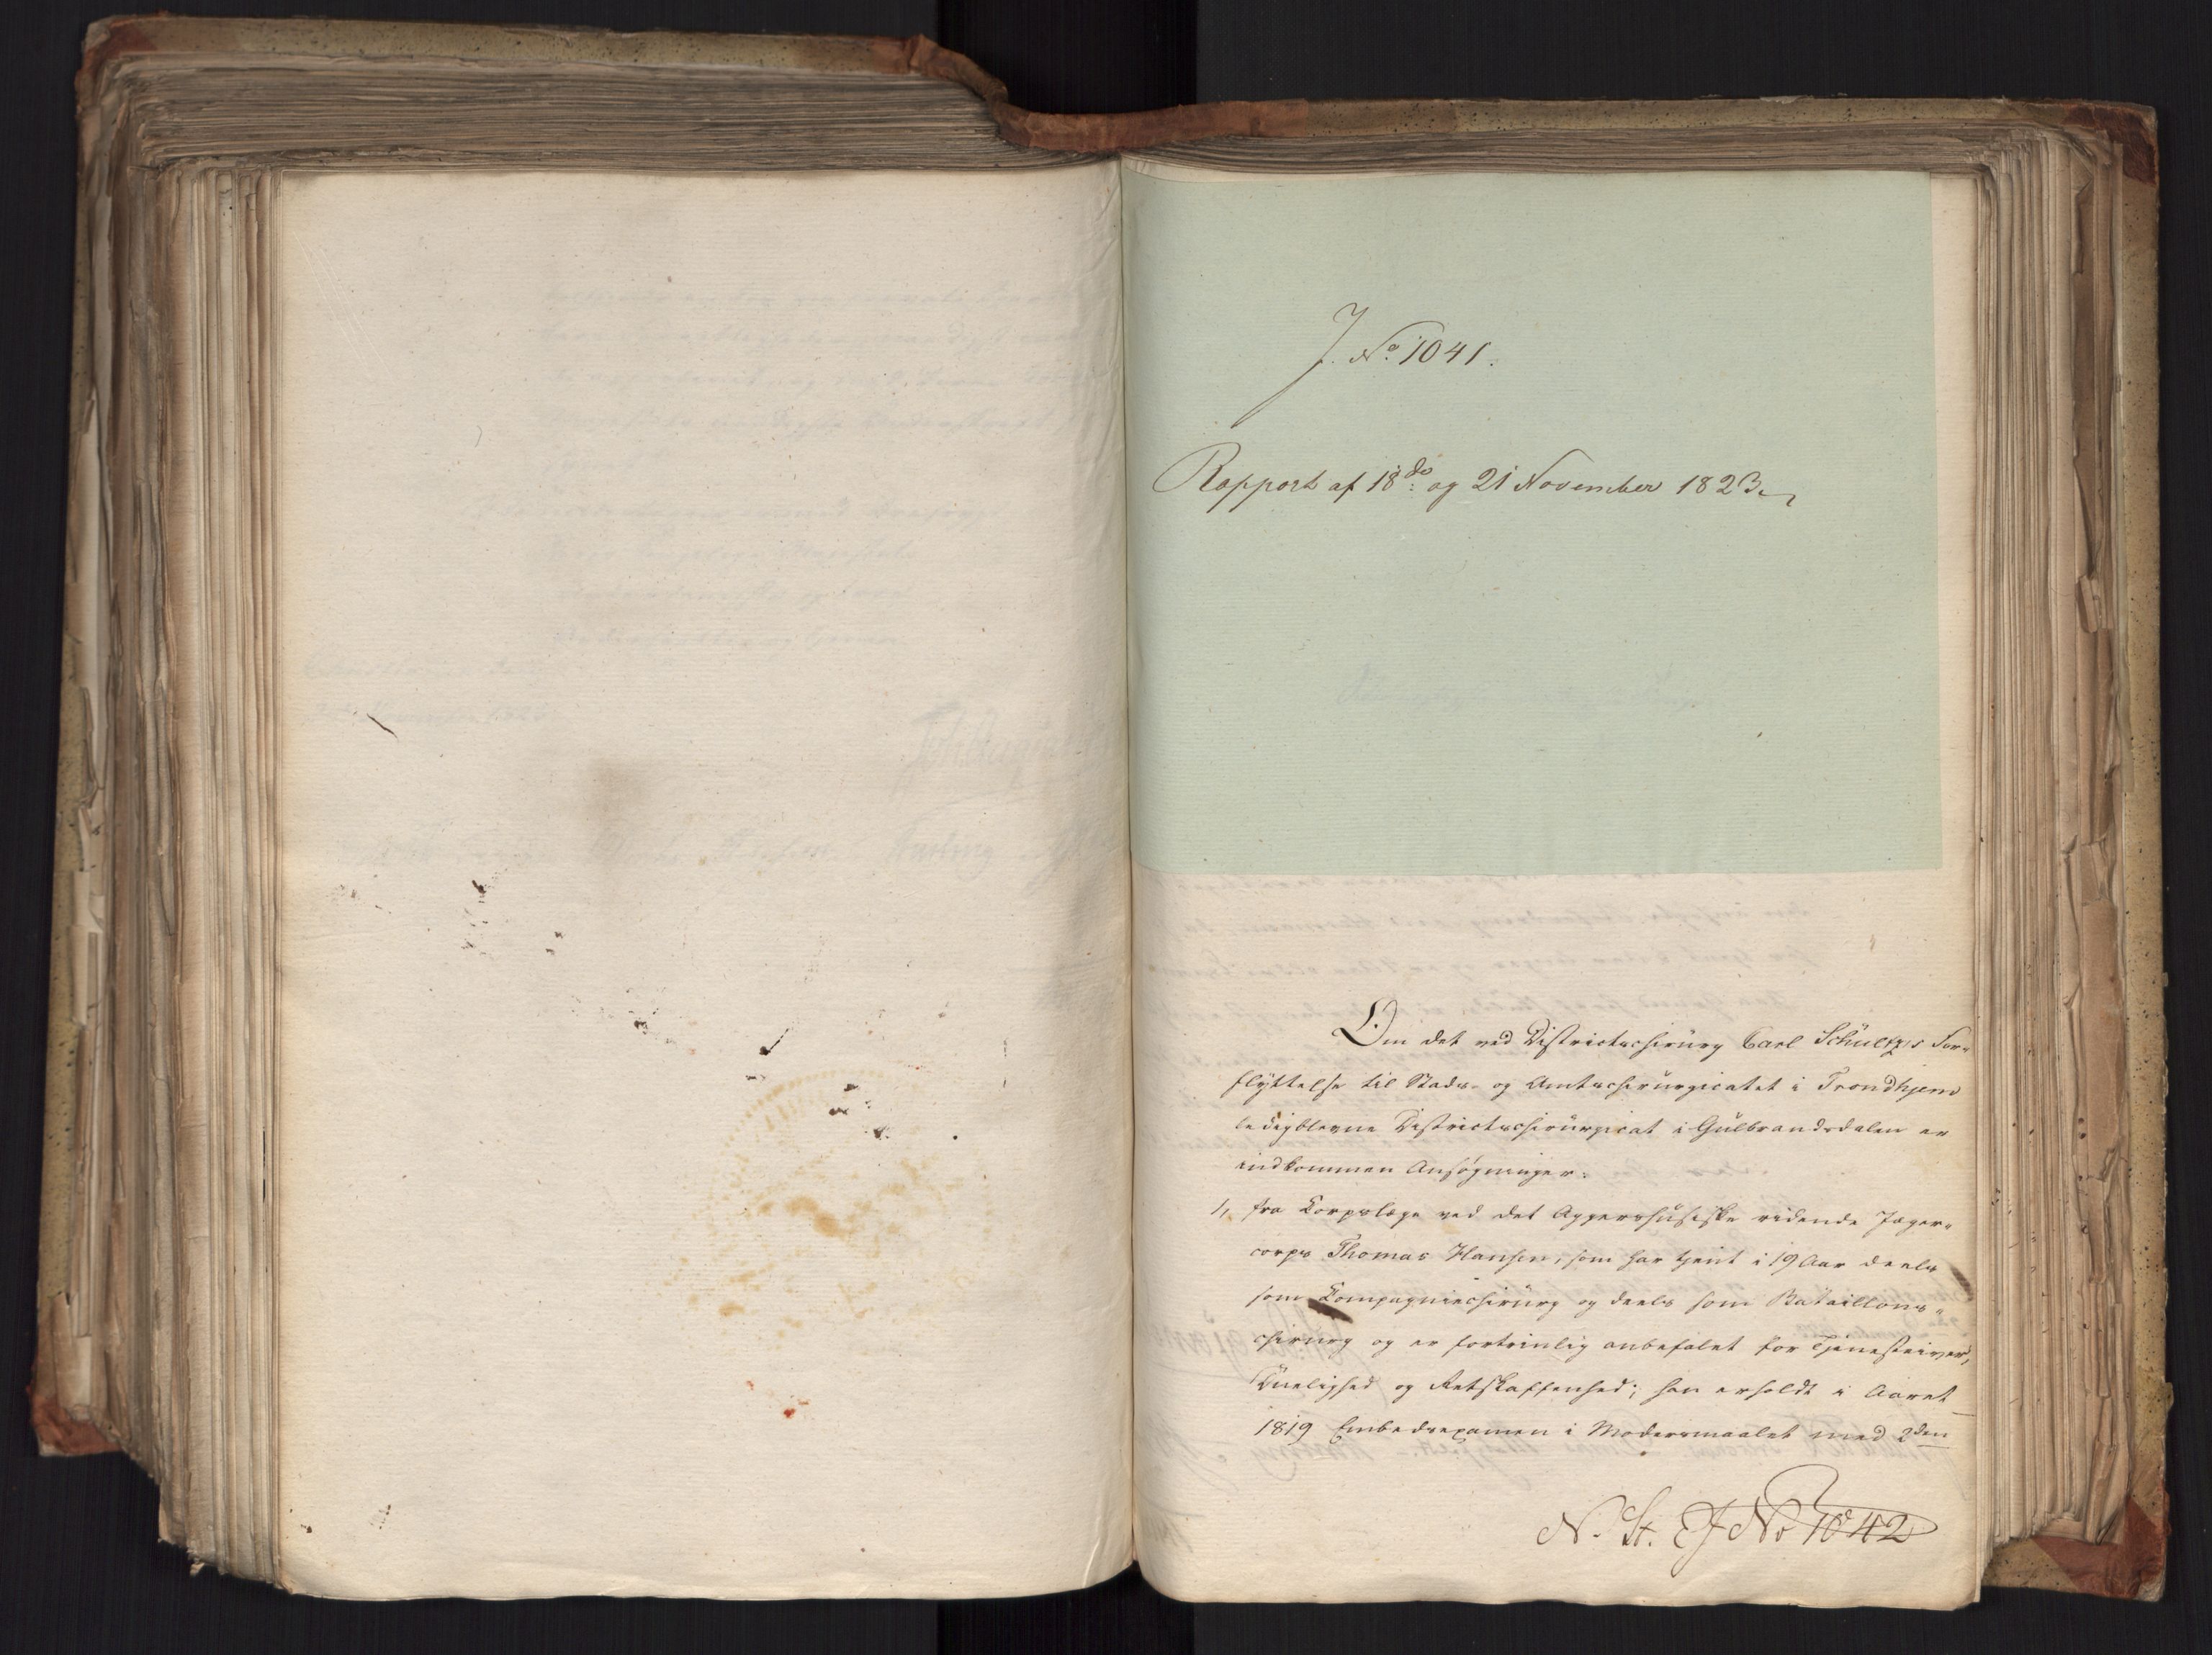 J. No. 1041.
Rapport af 18de og 21 November 1823.
Om det ved Districtschirurg Carl Schültz's For-
flÿttelse til Stads- og Amtschirurgicatet i Trondhjem
ledigblevne Districtschirurgicat i Gulbrandsdalen er
indkommen Ansøgninger:
1, fra Corpslæge ved det Aggershusiske ridende Jæger-
corps Thomas Hansen, som har tjent i 19 Aar deels
som Compagniechirurg og deels som Bataillons-
chirurg og er fortrinlig anbefalet for Tjenesteiver,
Duelighed og Retskaffenhed; han erholdt i Aaret
1819 Embedsexamen i Modersmaalet med 2den
N. St. J No 1042